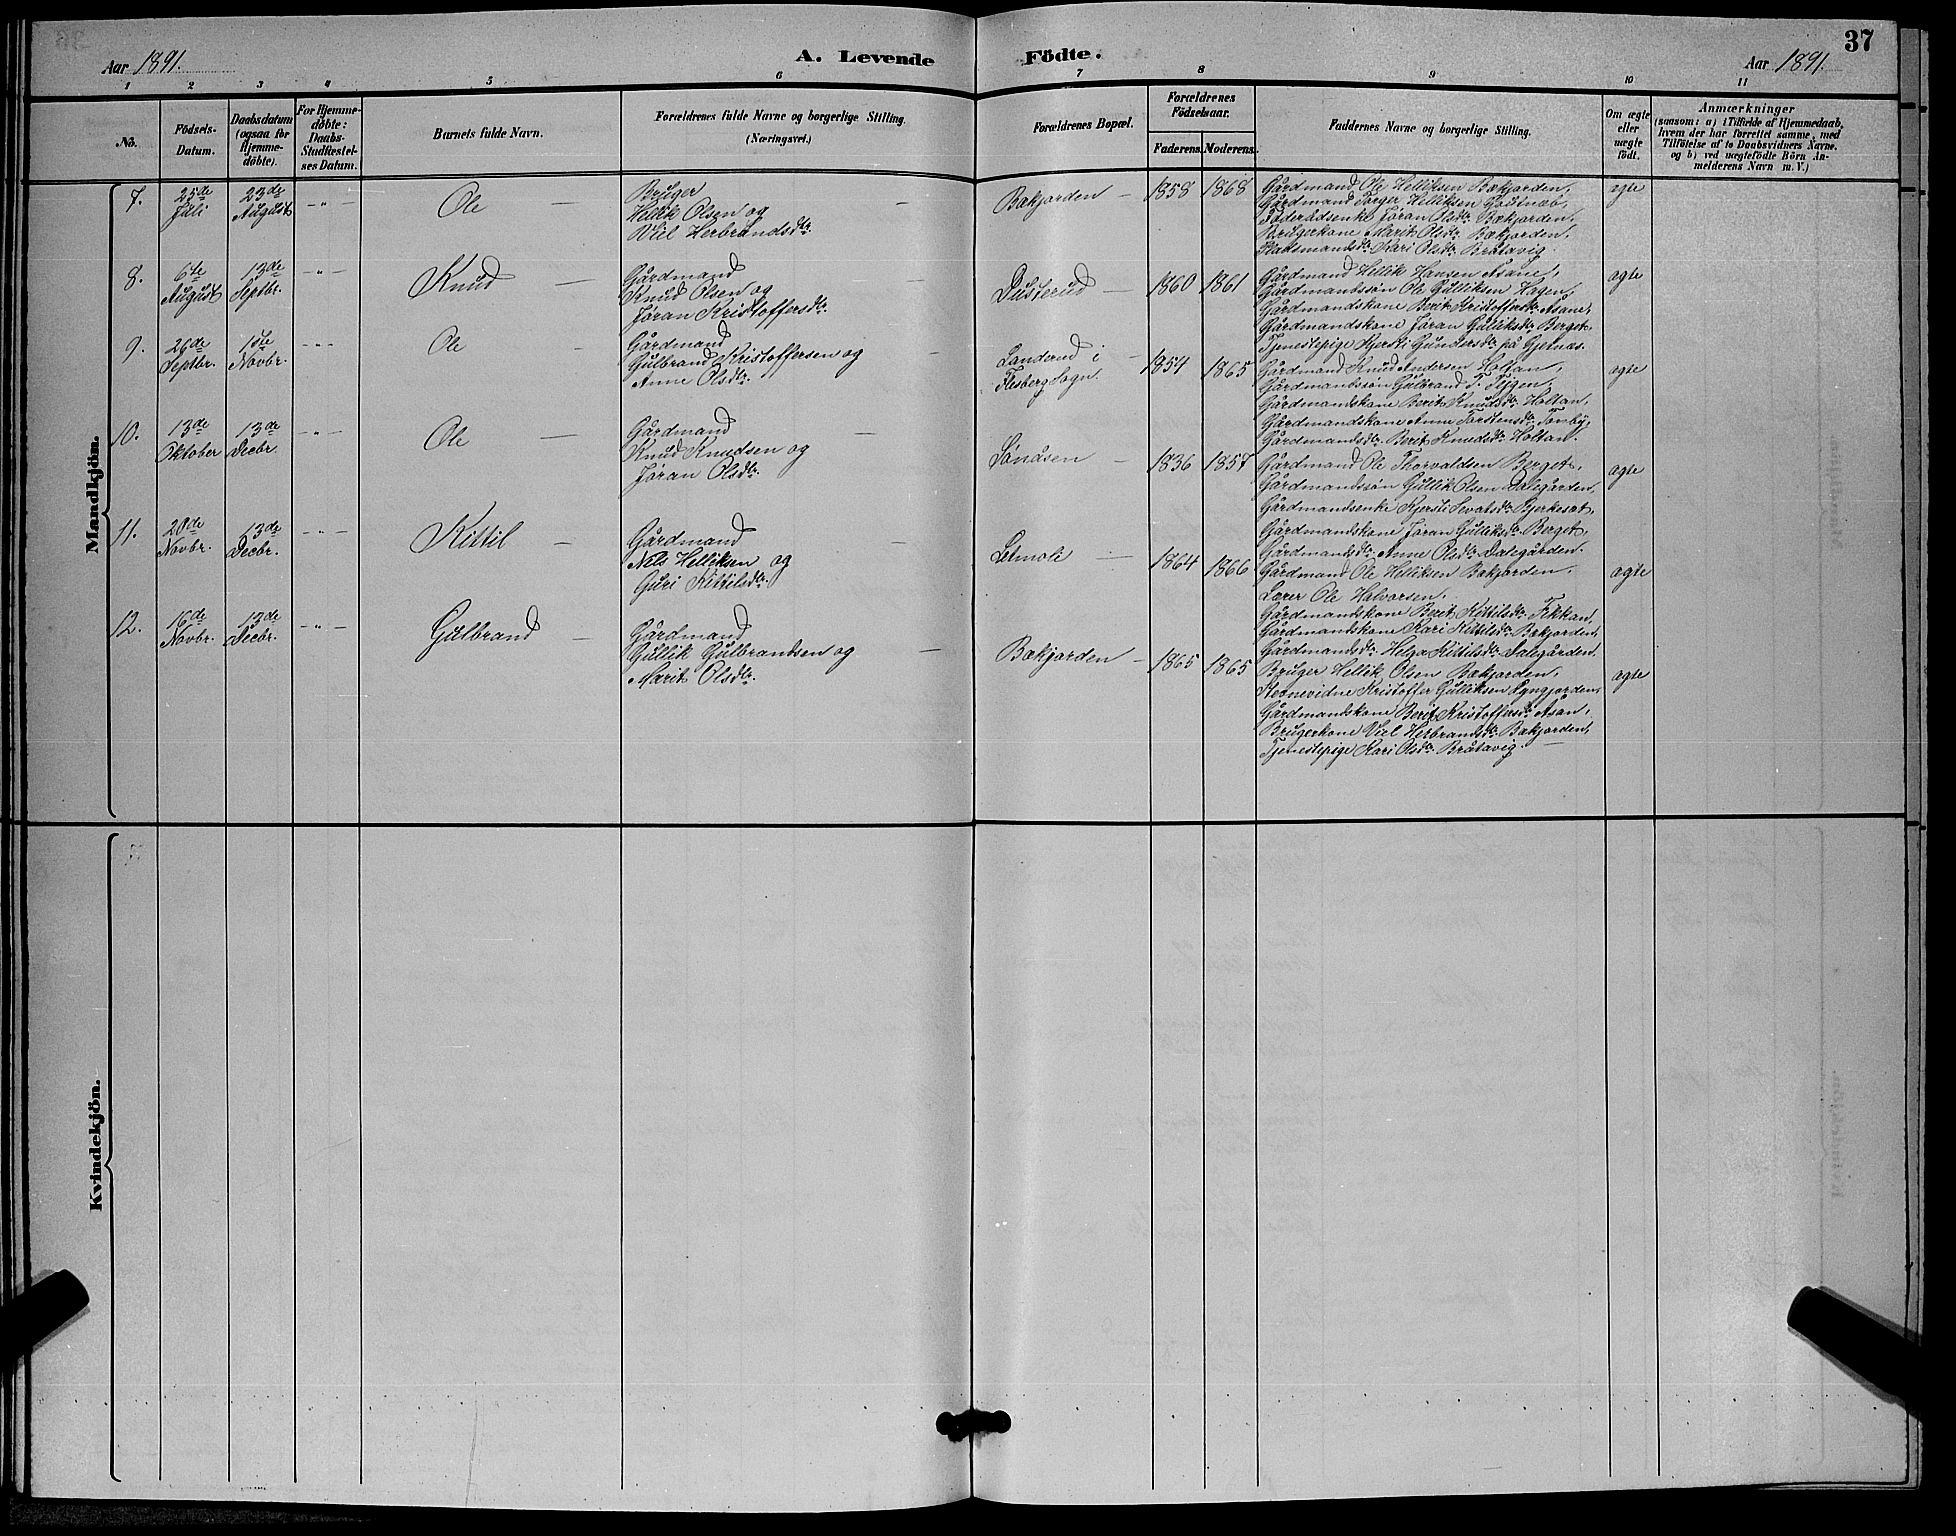 Aar 1891.
A. Levende Födte.
Aar 1891.
37
1 2 3 4 5 6 7 8 9 10 11
No.
Födsels-Datum.
Daabsdatum (ogsaa for Hjemme-döbte).
For Hjemme-döbte: Daabs-Stadfæstel-ses Datum.
Barnets fulde Navn.
Forældrenes fulde Navne og borgerlige Stilling. (Næringsvei.)
Forældrenes Bopæl.
Forældrenes Födselsaar.
Faderens. Moderens.
Faddernes Navne og borgerlige Stilling.
Om ægte eller uægte födt.
Anmærkninger
(saasom: a) i Tilfælde af Hjemmedaab,
hvem der har forrettet samme, med
Tilföielse af to Daabsvidners Navne.
og b) ved uægtefödte Börn An-
melderens Navn m. V.)
Mandkjön.
7. 25de Juli 23de August - " - Ole —
Bruger
Hellik Olsen og
Viel Herbrandsdtr.
Bækjorden — 1858 1868
Gårdmand Ole Helliksen Bækjorden,
Gårdmand Torger Helliksen
Föderådsenke Jöran Olsdtr. Bækjorden,
Brugerkone Marit Olsdtr. Bækjorden.
Pladsmandsdtr. Kari Olsdtr. Bråtavig
ægte
8. 6te August 13de Septbr. - " - Knud —
Gårdmand
Knud Olsen og
Jöran Kristoffersdtr.
Dusterud — 1860 1861
Gårdmand Hellik Hansen Åsane,
Gårdmandssön Ole Gulliksen Hagen,
Gårdmandskone Berit Kristoffersdtr. Åsane,
Gårdmandskone Jöran Gulliksdtr. Berget,
Tjenestepige Kjersti Gundersdtr. på Gjetnæs.
ægte
9. 26de Septbr. 1ste Novbr. - " - Ole —
Gårdmand
Gulbrand Kristoffersen og
Anne Olsdtr.
Landerud i
Flesberg Sogn. 1854 1865
Gårdmand Knud Andersen Holtan,
Gårdmandssön Gulbrand T.
Gårdmandskone Berit Knudsdtr. Holtan,
Gårdmandskone Anne Torstensdtr.
Gårdmandsdtr. Berit Knudsdtr. Holtan.
ægte
10. 13de Oktober 13de Decbr. - " - Ole —
Gårdmand
Knud Knudsen og
Jöran Olsdtr.
Lönåsen — 1836 1857
Gårdmand Ole Thorvaldsen Berget,
Gårdmandssön Gullik Olsen Dalegården,
Gårdmandsenke Kjersti Sevatsdtr. Bjerkeset,
Gårdmandskone Jöran Gulliksdtr. Berget,
Gårdmandsdtr. Anne Olsdtr. Dalegården.
ægte
11. 20de Novbr. 13de Decbr. - " - Kittil —
Gårdmand
Nils Helliksen og
Guri Kittilsdtr.
Sætmoli — 1864 1866
Gårdmand Ole Helliksen Bækjorden.
Lærer Ole Halvorsen,
Gårdmandskone Berit Kittilsdtr. Fikkan,
Gårdmandskone Kari Kittilsdtr. Bækjorden,
Gårdmandsdtr. Helga Kittilsdtr. Dalegården.
ægte
12. 16de Novbr. 13de Decbr. - " - Gulbrand —
Gårdmand
Gullik Gulbrandsen og
Marit Olsdtr.
Bækjorden — 1865 1865
Bruger Hellik Olsen Bækjorden,
Stevnevidne Kristoffer Gulliksen
Gårdmandskone Berit Kristoffersdtr. Åsan,
Brugerkone Viel Herbrandsdtr. Bækjorden,
Tjenestepige Kari Olsdtr. Bråtavig. —
ægte
Kvindekjön.